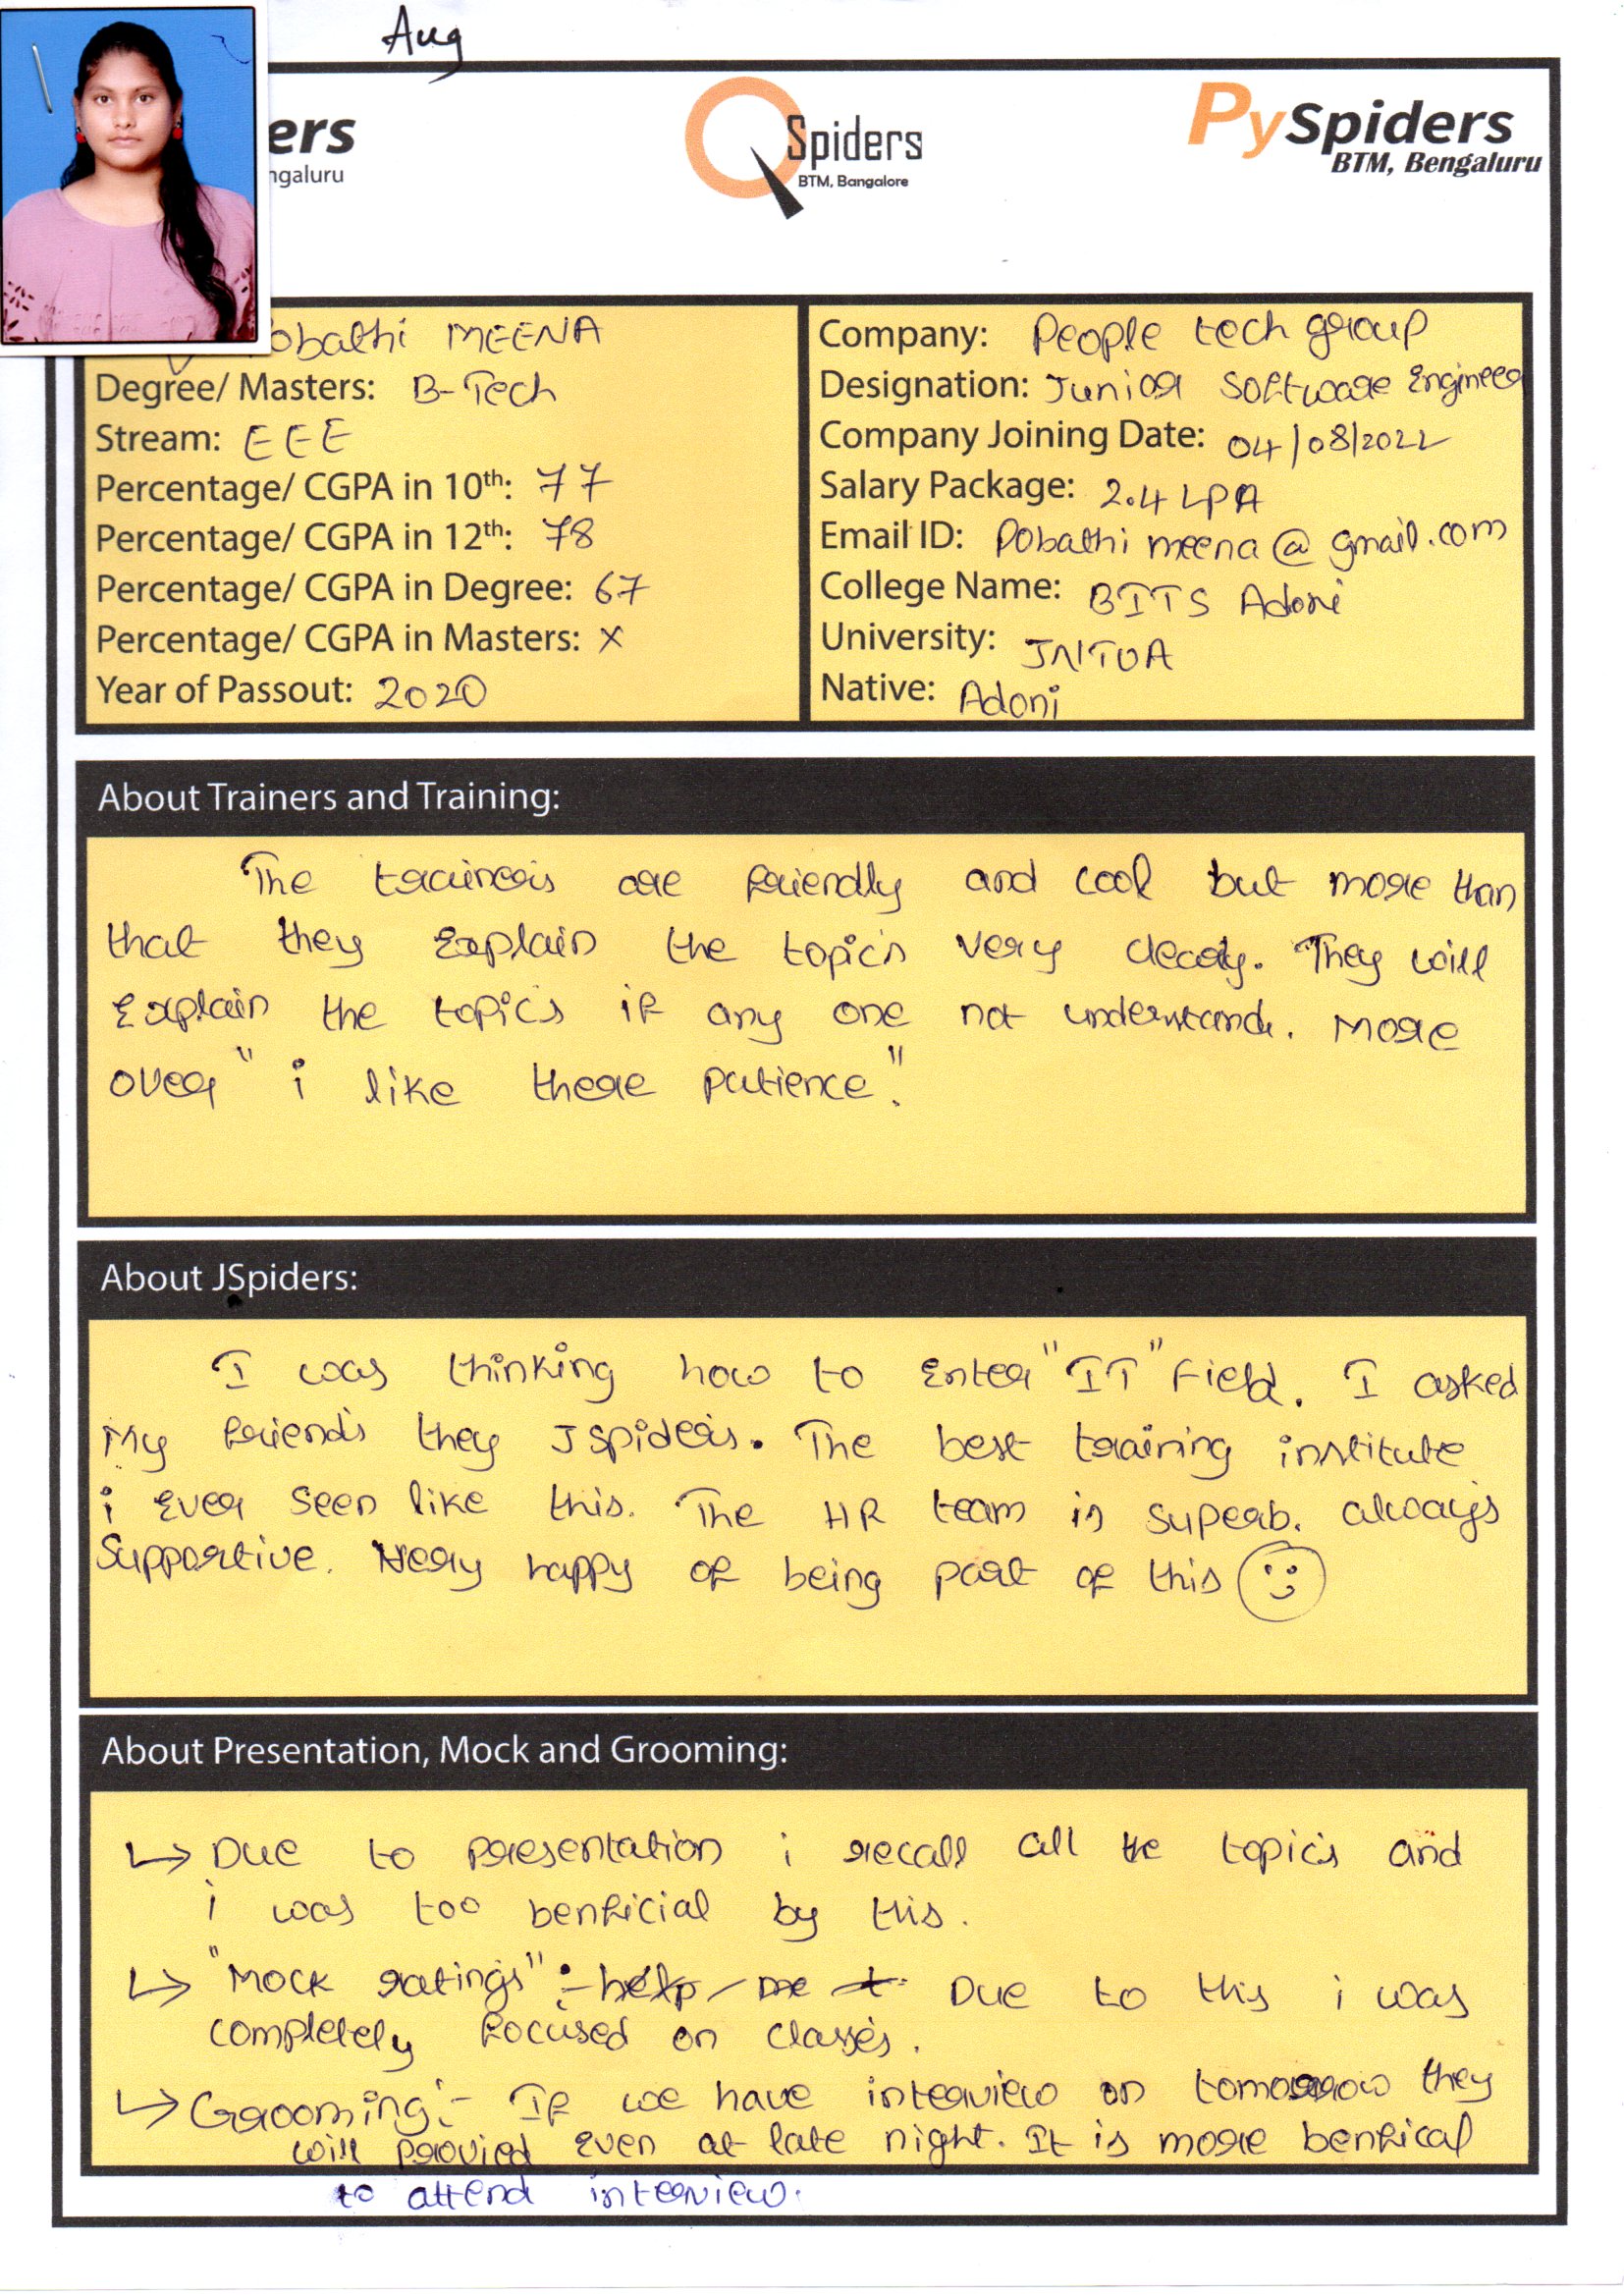 Aug
ers
ngaluru
QSpiders
BTM, Bangalore
PySpiders
BTM, Bengaluru
obathi MEENA
Degree/ Masters: B-Tech
Stream: EEE
Percentage/ CGPA in 10th: 77
Percentage/ CGPA in 12th: 78
Percentage/ CGPA in Degree: 67
Percentage/ CGPA in Masters: X
Year of Passout: 2020
Company: People tech group
Designation: Junior Software Engineer
Company Joining Date: 04/08/2022
Salary Package: 2.4 LPA
Email ID: Pobathi meena@gmail.com
College Name: BITS Adoni
University: JNTUA
Native: Adoni
About Trainers and Training:
The trainers are friendly and cool but more than
that they Explain the topics very clearly. They will
Explain the topics if any one not understand. More
over "i like there patience".
About JSpiders:
I was thinking how to Enter "IT" Field. I asked
My friends they J Spiders. The best training institute
i Ever seen like this. The HR team is superb. always
Supportive. Very happy of being part of this
About Presentation, Mock and Grooming:
↳ Due to presentation i recall all the topics and
i was too benficial by this.
↳ "Mock ratings" :- help me t Due to this i was
completely focused on classes.
↳ Grooming:- If we have interview on tomorrow they
will provied even at late night. It is more benfical
to attend interview.